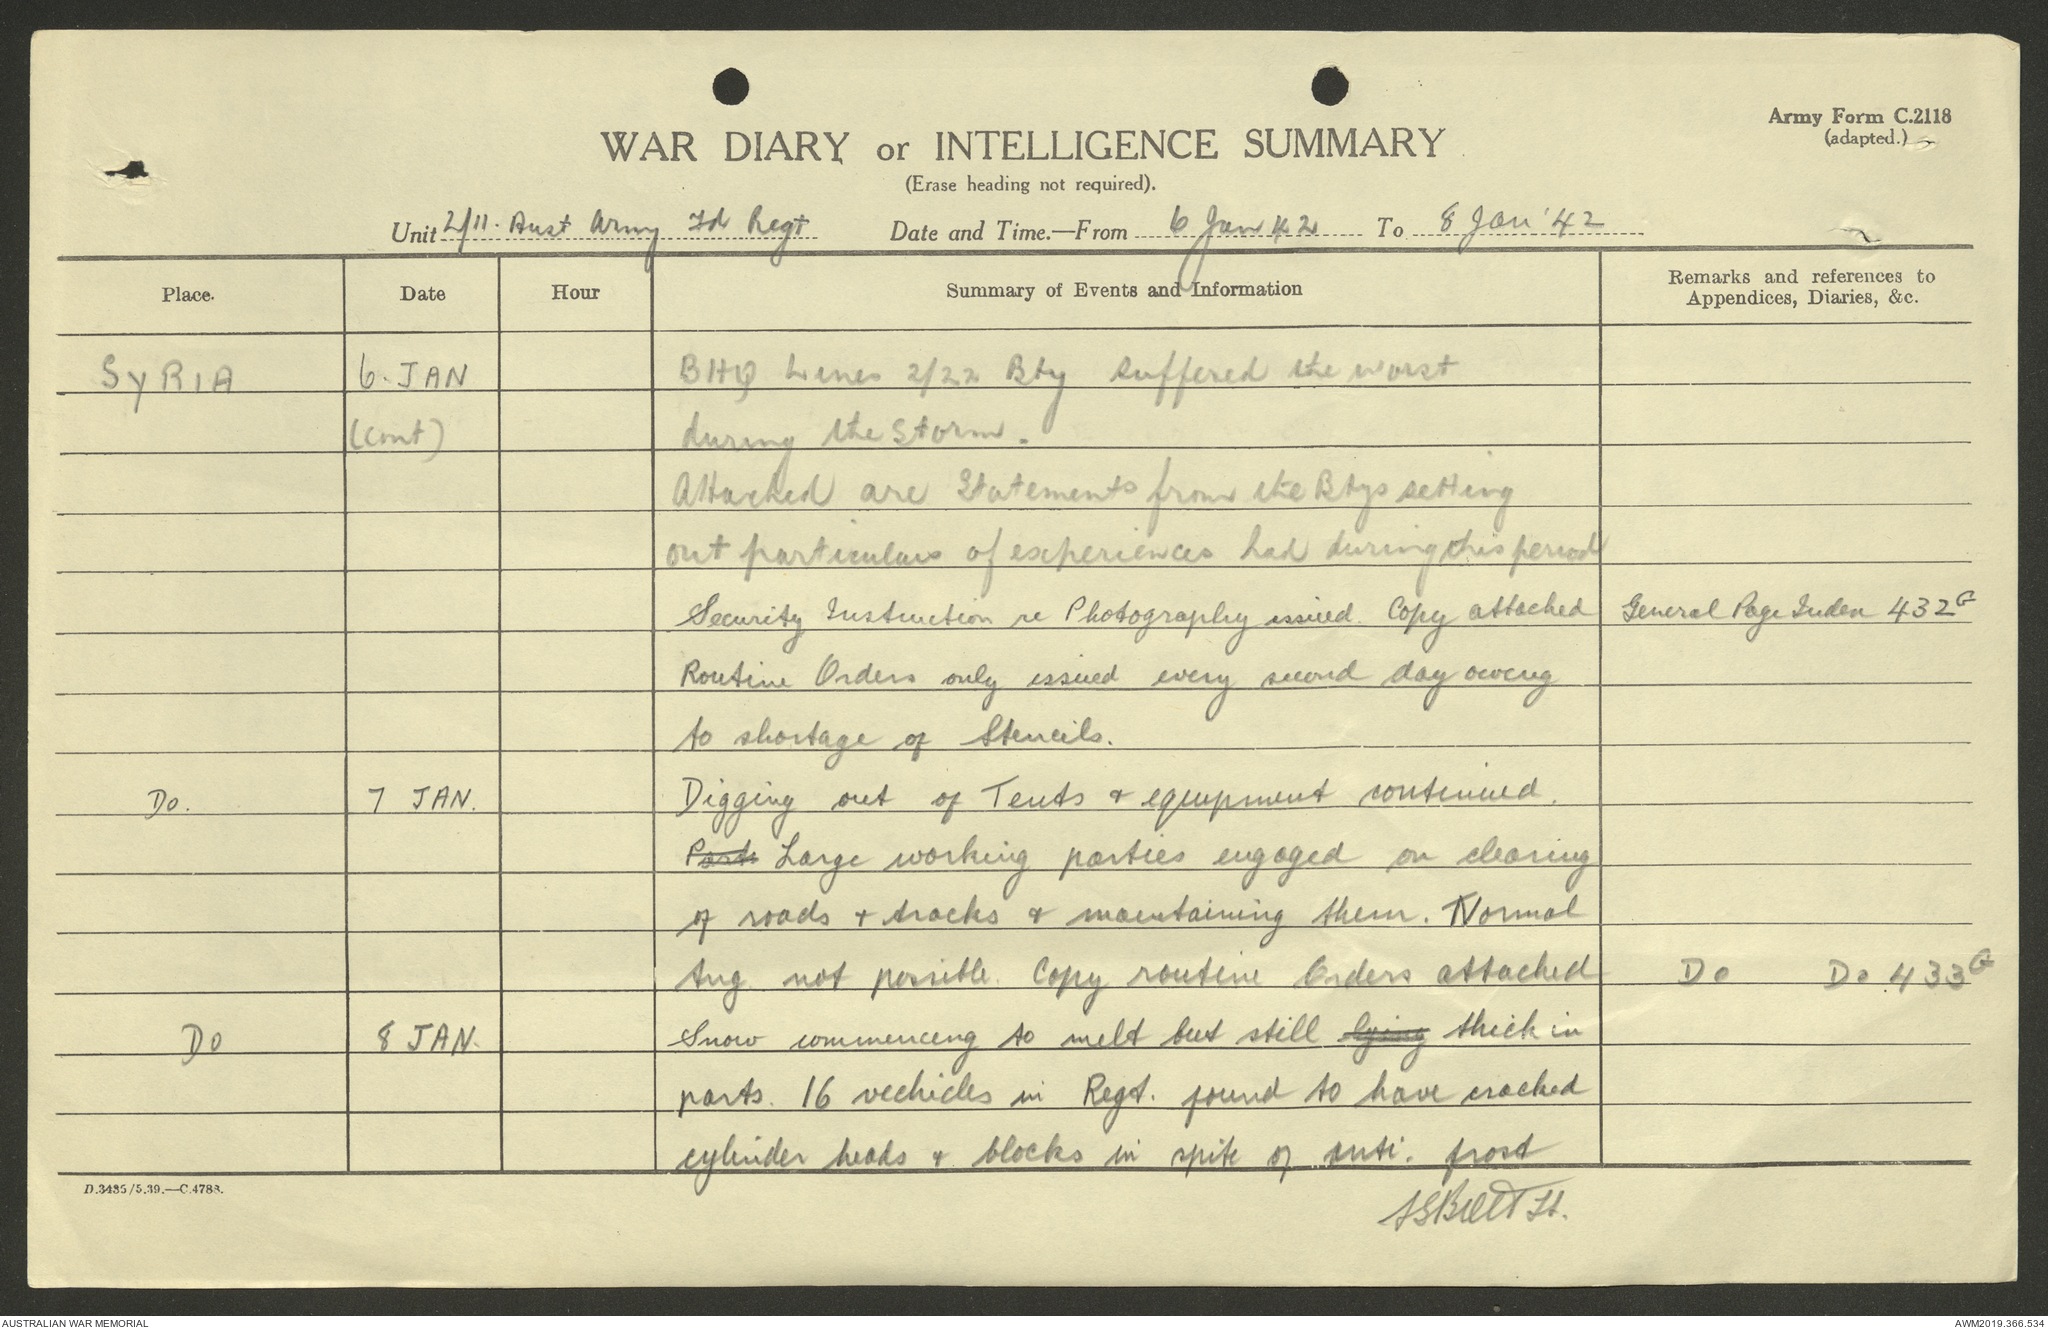 Army Form C.2118
(adapted.)
WAR DIARY or INTELLIGENCE SUMMARY
(Erase heading not required).
Unit 2/11. Aust Army Fd Regt Date and Time.—From 6 Jan 42 To 8 Jan '42
Place. Date Hour Summary of Events and Information Remarks and references to
Appendices, Diaries, &c.
SYRIA 6. JAN BHQ Lines 2/22 Bty suffered the worst
(cont) during the storm.
Attached are Statements from the Btys setting
out particulars of experiences had during this period
Security Instruction re Photography issued. Copy attached General Page Index 432G
Routine Orders only issued every second day oweng
to shortage of Stencils.
Do. 7 JAN. Digging out of Tents & equipment continued.
Large working parties engaged on clearing
of roads & tracks & maintaining them. Normal
tng. not possible. Copy routine Orders attached Do Do 433G
Do 8 JAN. Snow commenceng to melt but still lying thick in
parts. 16 vechicles in Regt. found to have cracked
cylinder heads & blocks in spite of anti. frost
D.3435/5.39.—C.4788.
Lt.
AUSTRALIAN WAR MEMORIAL AWM2019.366.534